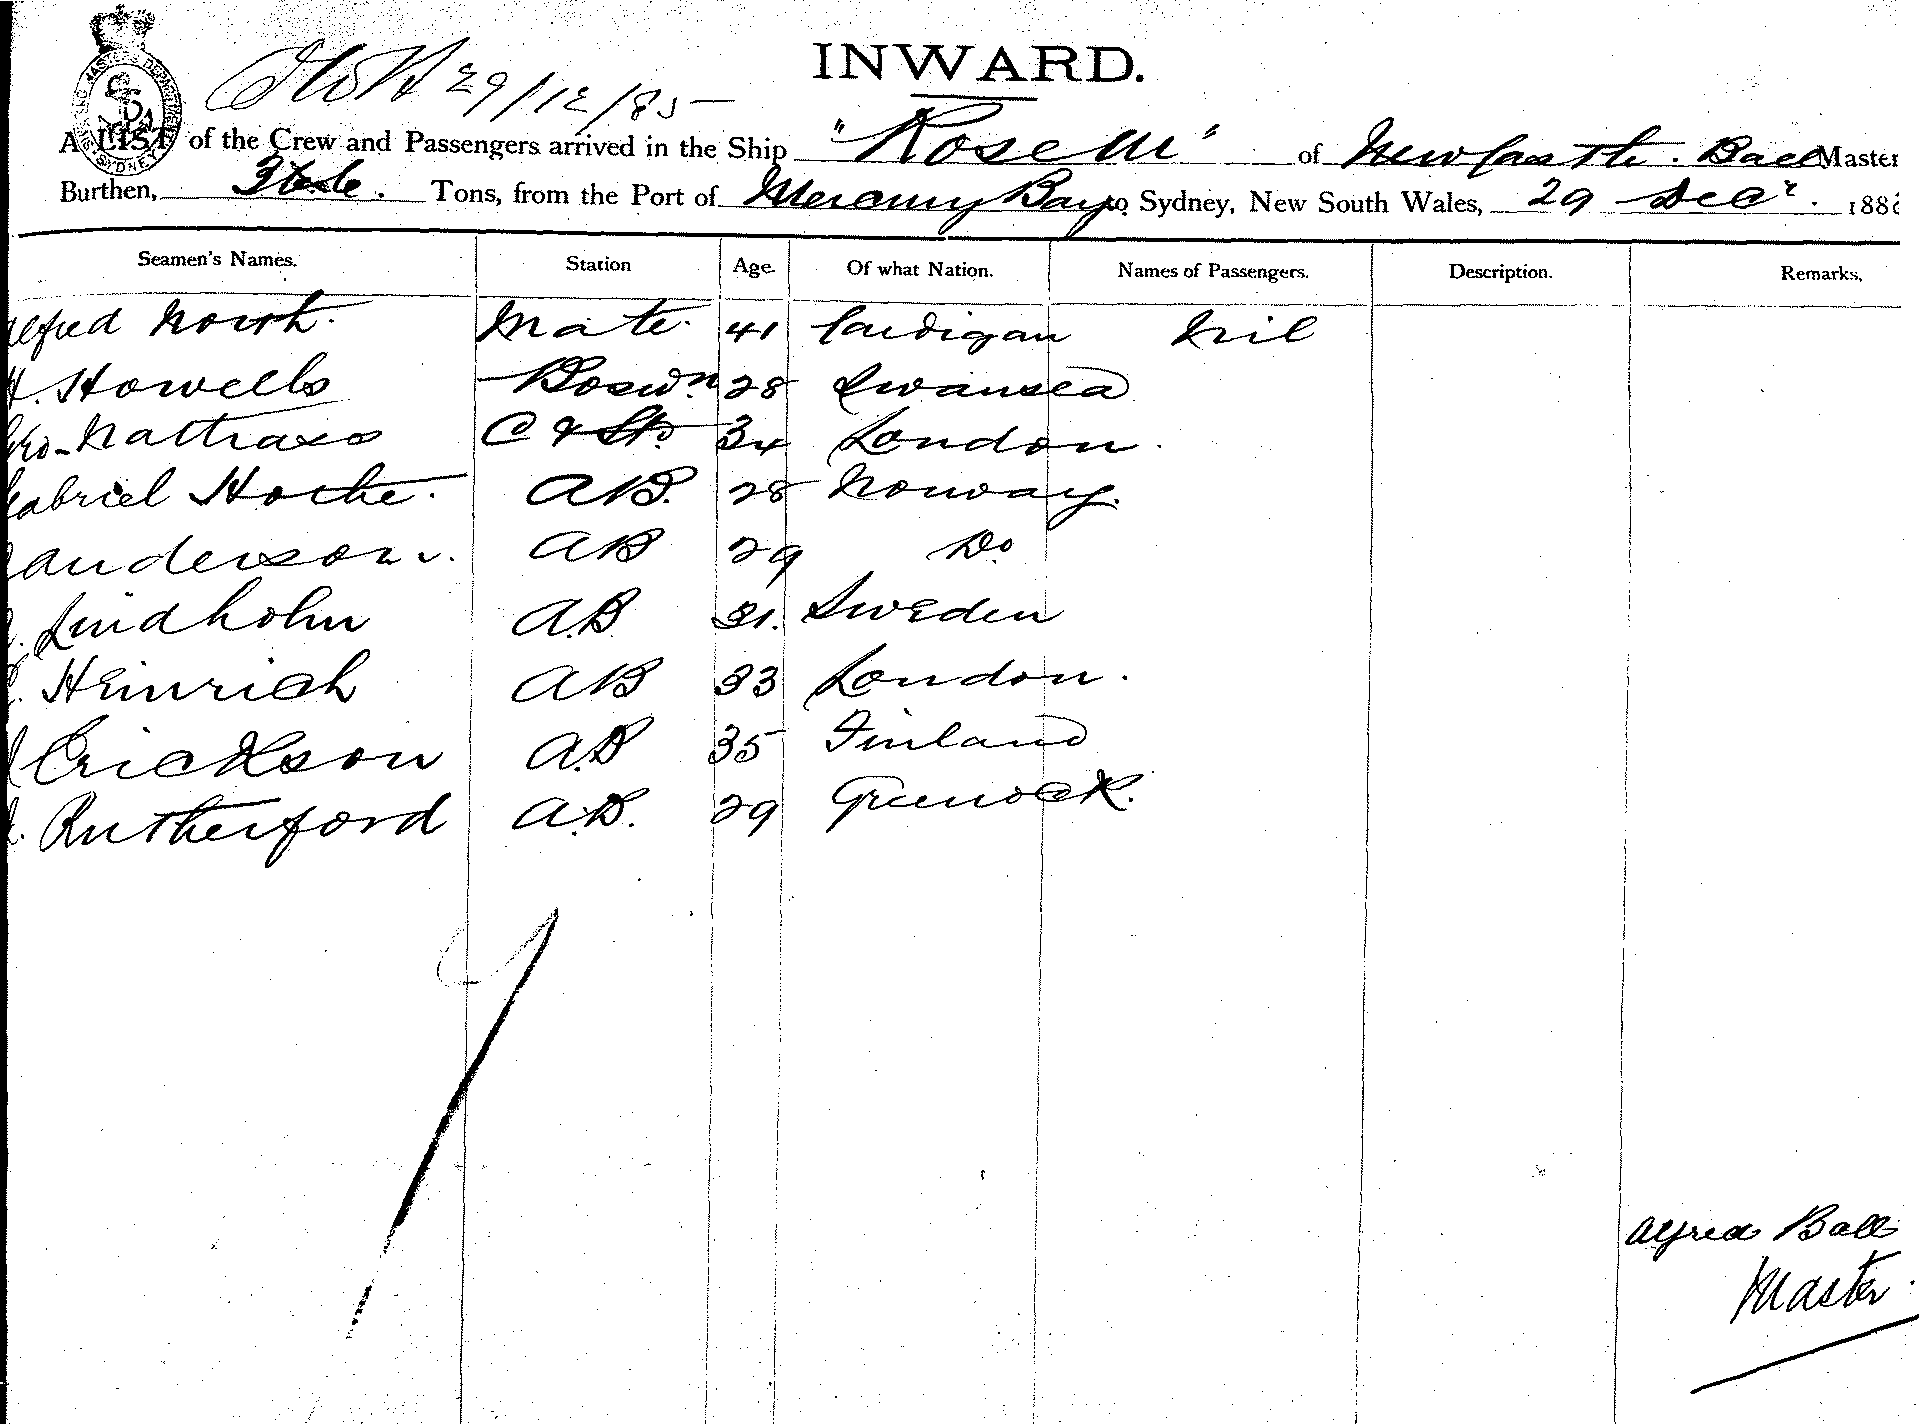 INWARD.
29/12/85
A LIST of the Crew and Passengers arrived in the Ship "Rose M" of Newcastle. Ball Master
Burthen, Tons, from the Port of Mercury Bay to Sydney, New South Wales, 29 Decr. 188
Seamen's Names. Station Age. Of what Nation. Names of Passengers. Description. Remarks,
Alfred North. Mate. 41 Cardigan Nil
H. Howells Boswn 28 Swansea
Geo. Nattrass C & Std. 34 London.
Gabriel A.B. 28 Norway.
Anderson. AB 29 Do
Lindholm A.B. 31. Sweden
Heinrich AB 33 London.
Erickson A.B 35 Finland
Rutherford A.B. 29 Greenock.
Alfred Ball
Master.